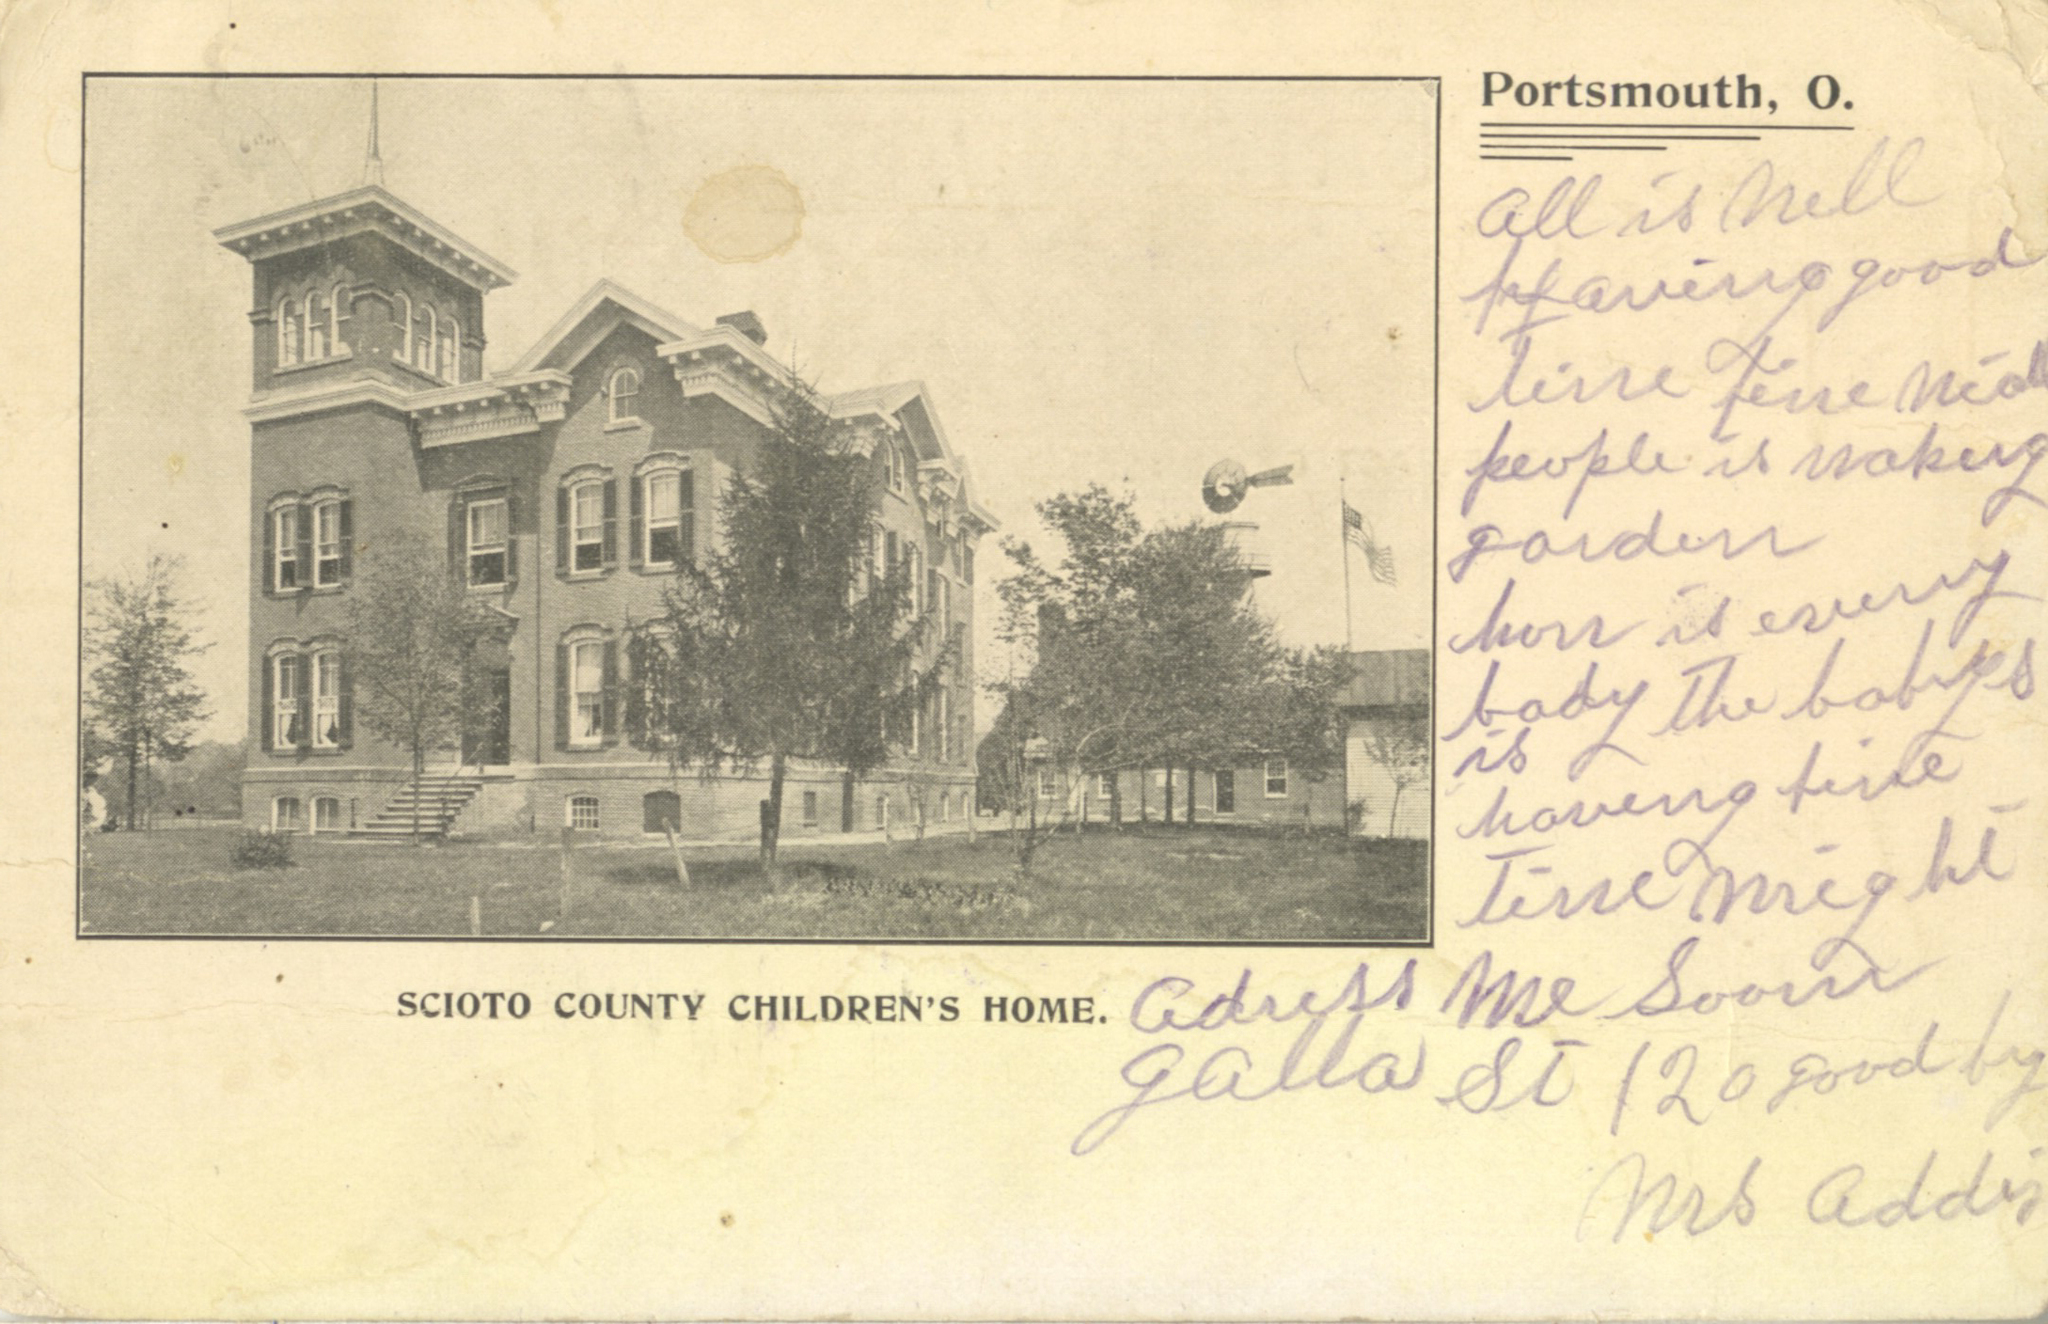 Portsmouth, O.
All is Well
Having good
time fine
people is making
garden
how is every
body the babyes
is
having fine
time Wright
Adress Me Soon
galla St 120 good by
Mrs Addis
SCIOTO COUNTY CHILDREN'S HOME.